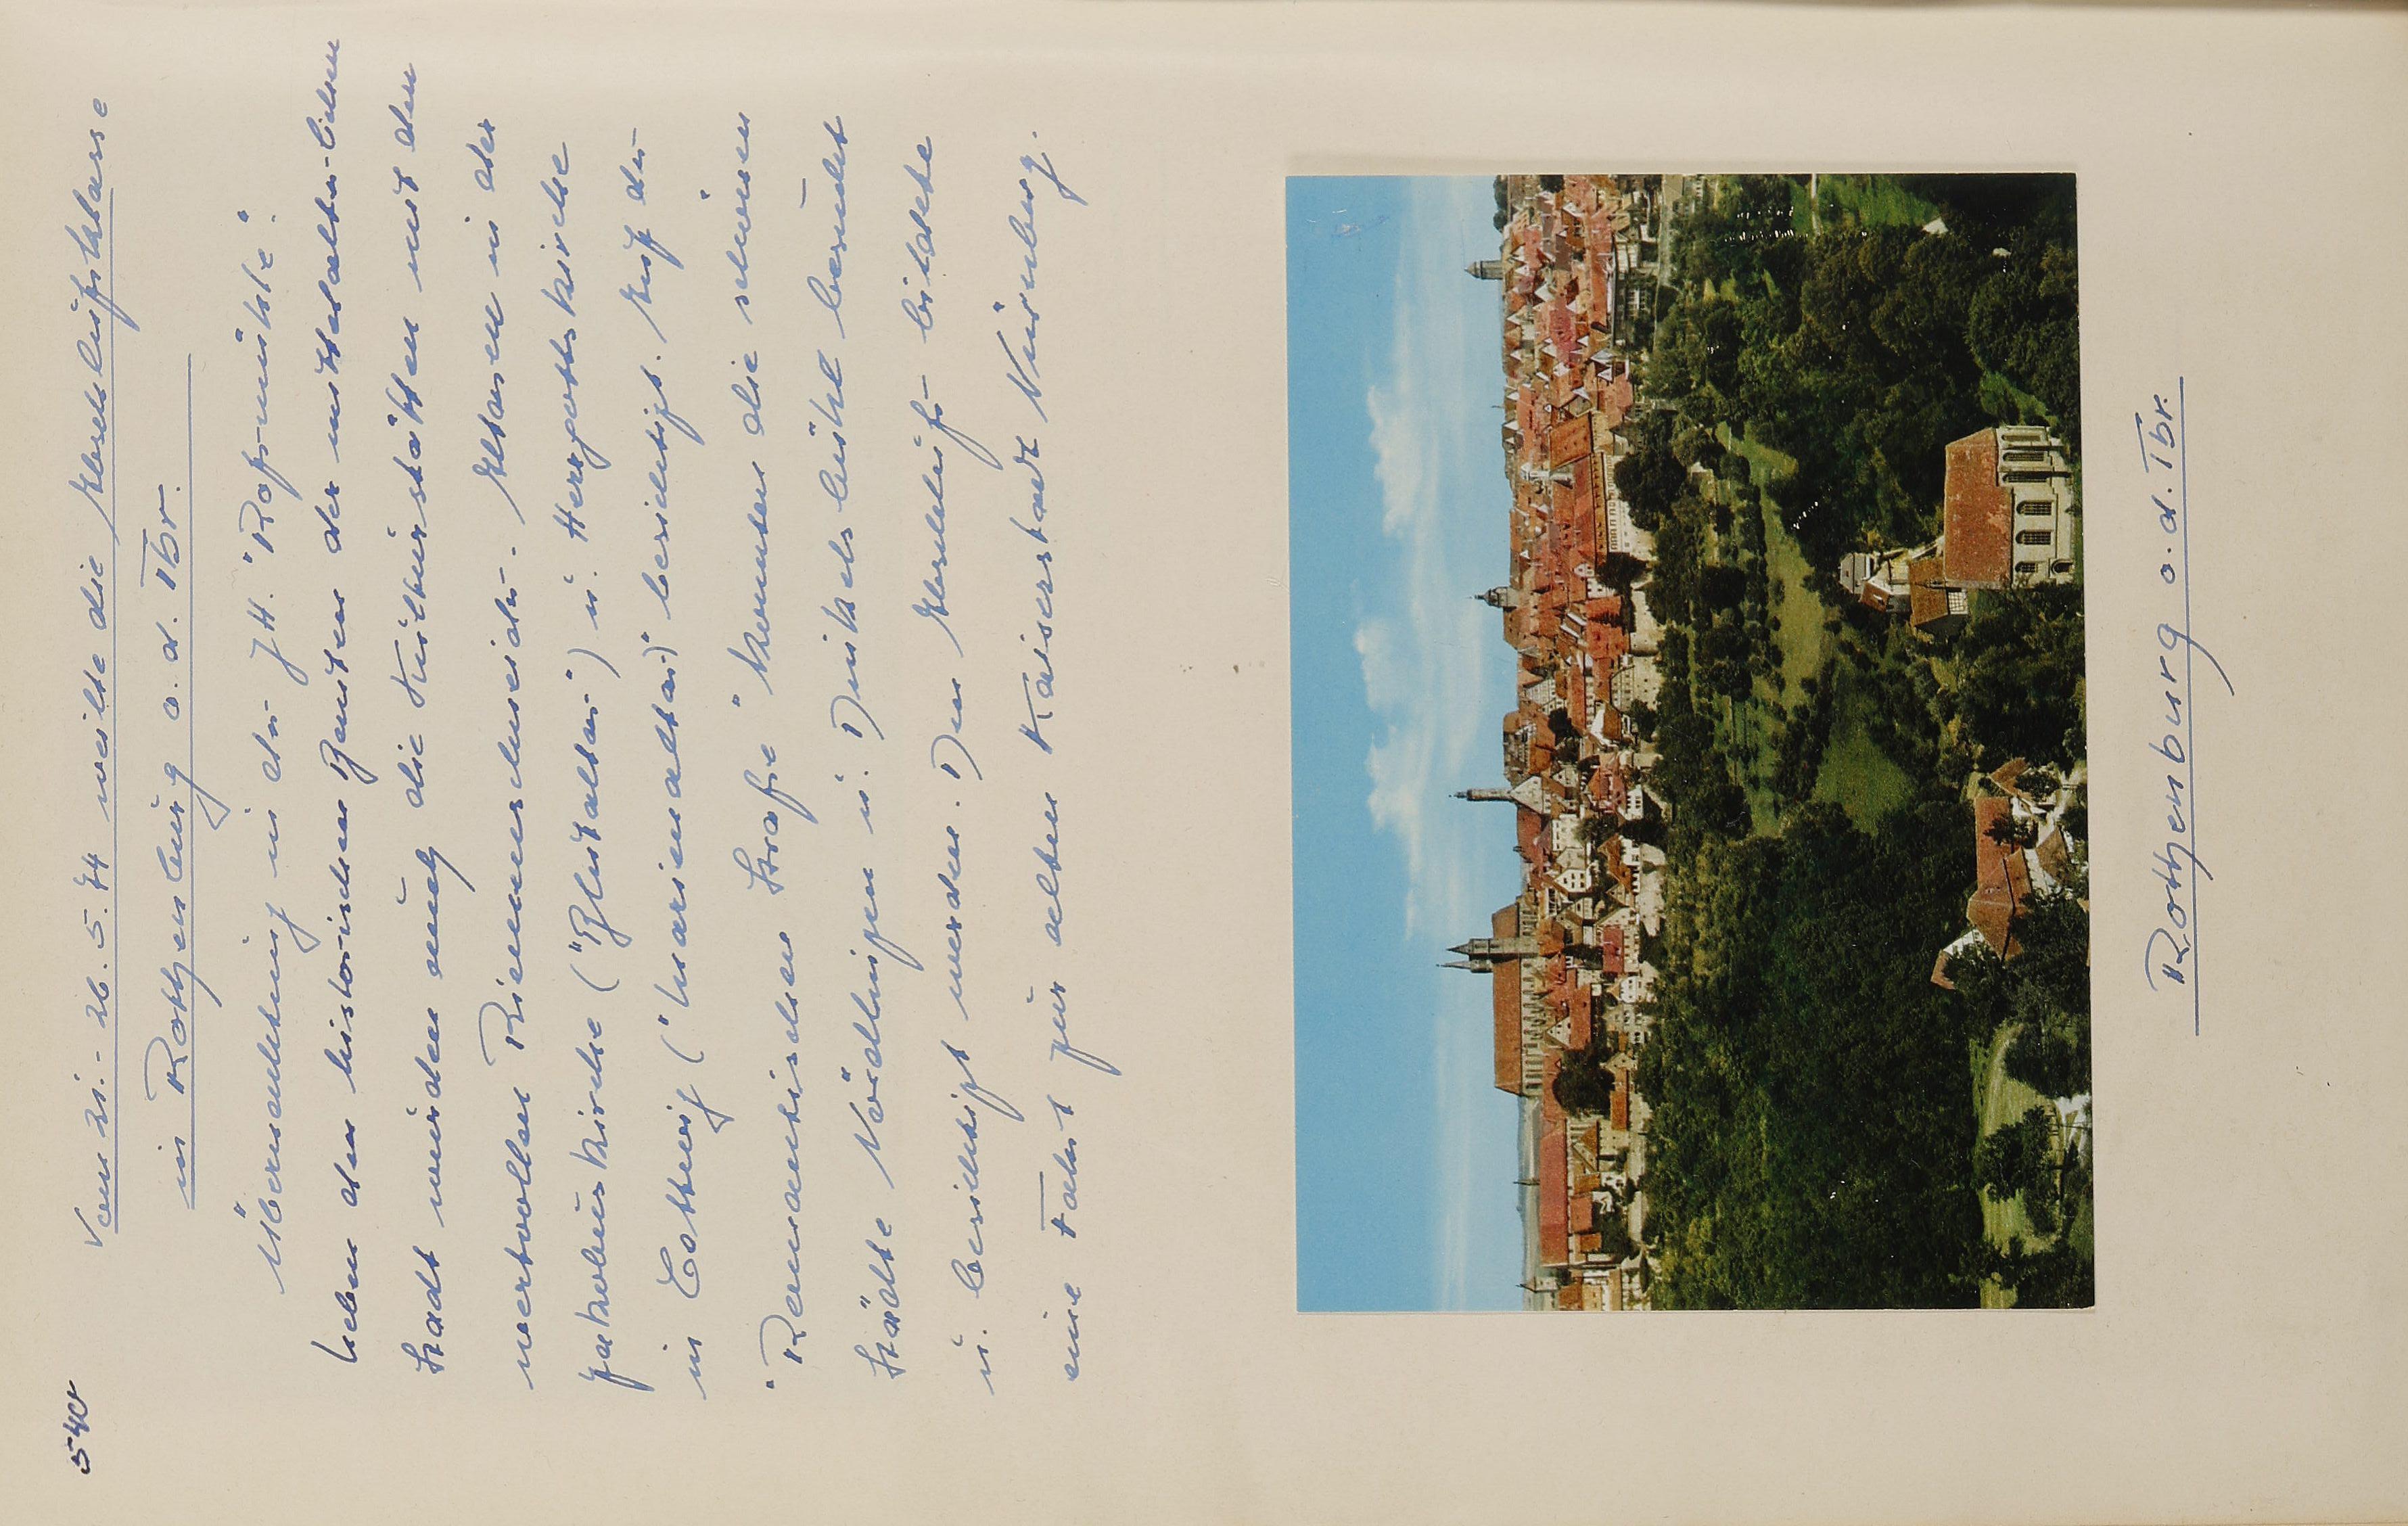 540
Vom 21.- 26.5.74 weilte die Abschlußklasse
in Rothenburg o. d. Tbr.
Übernachtung in der JH. "Roßmühle".
Neben den historischen Bauten der mittelalterlichen
Stadt wurden auch die Kulturstätten mit den
wertvollen Riemenschneider- Altären in der
Jakobuskirche ("Blutaltar") u. Herrgottskirche
in Creglingen ("Marienaltar") besichtigt. Auf der
"Romantischen Straße" konnten die schönen
Städte Nördlingen u. Dinkelsbühl besucht
u. besichtigt werden. Den Abschluß bildete
eine Fahrt zur alten Kaiserstadt Nürnberg.
Rothenburg o.d.Tbr.